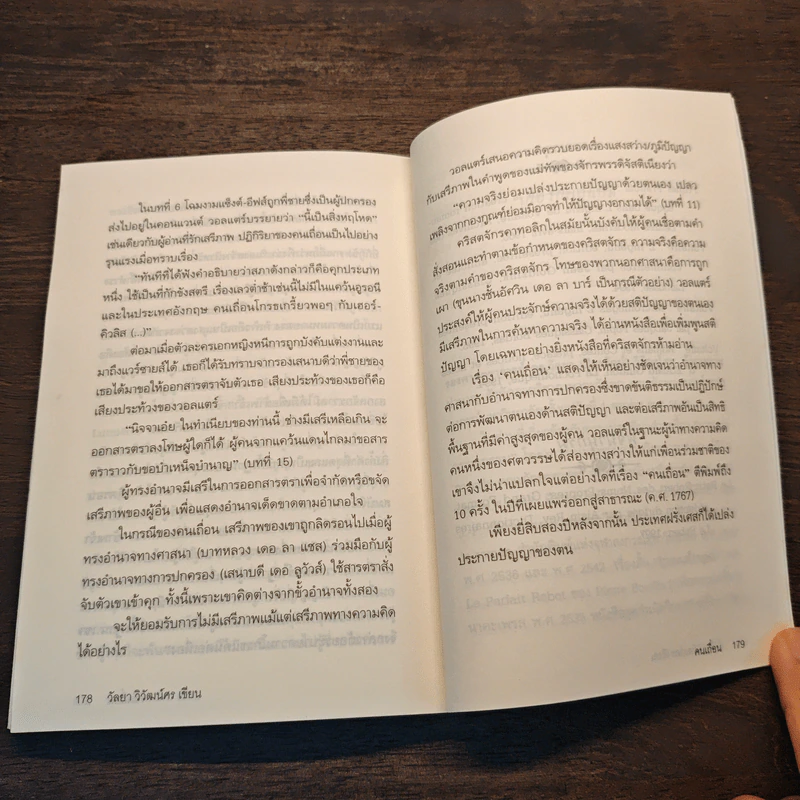 ในบทที่ 6 โฉมงามแซ็งต์-อีฟส์ถูกพี่ชายซึ่งเป็นผู้ปกครอง
ส่งไปอยู่ในคอนแวนต์ วอลแตร์บรรยายว่า “นี้เป็นสิ่งหฤโหด”
เช่นเดียวกับผู้อ่านที่รักเสรีภาพ ปฏิกิริยาของคนเถื่อนเป็นไปอย่าง
รุนแรงเมื่อทราบเรื่อง
“ทันทีที่ได้ฟังคำอธิบายว่าสภาดังกล่าวก็คือคุกประเภท
หนึ่ง ใช้เป็นที่กักขังสตรี เรื่องเลวต่ำช้าเช่นนี้ไม่มีในแคว้นอูรอนี
และในประเทศอังกฤษ คนเถื่อนโกรธเกรี้ยวพอๆ กับเฮอร์-
คิวลิส (...)”
ต่อมาเมื่อตัวละครเอกหญิงหนีการถูกบังคับแต่งงานและ
มาถึงแวร์ซายส์ได้ เธอก็ได้รับทราบจากรองเสนาบดีว่าพี่ชายของ
เธอได้มาขอให้ออกสารตราจับตัวเธอ เสียงประท้วงของเธอก็คือ
เสียงประท้วงของวอลแตร์
“นิจจาเอ๋ย ในทำเนียบของท่านนี้ ช่างมีเสรีเหลือเกิน จะ
ออกสารตราลงโทษผู้ใดก็ได้ ผู้คนจากแคว้นแดนไกลมาขอสาร
ตราราวกับขอบำเหน็จบำนาญ” (บทที่ 15)
ผู้ทรงอำนาจมีเสรีในการออกสารตราเพื่อจำกัดหรือขจัด
เสรีภาพของผู้อื่น เพื่อแสดงอำนาจเด็ดขาดตามอำเภอใจ
ในกรณีของคนเถื่อน เสรีภาพของเขาถูกลิดรอนไปเมื่อผู้
ทรงอำนาจทางศาสนา (บาทหลวง เดอ ลา แชส) ร่วมมือกับผู้
ทรงอำนาจทางการปกครอง (เสนาบดี เดอ ลูวัวส์) ใช้สารตราสั่ง
จับตัวเขาเข้าคุก ทั้งนี้เพราะเขาคิดต่างจากขั้วอำนาจทั้งสอง
จะให้ยอมรับการไม่มีเสรีภาพแม้แต่เสรีภาพทางความคิด
ได้อย่างไร
178 วัลยา วิวัฒน์ศร เขียน
วอลแตร์เสนอความคิดรวบยอดเรื่องแสงสว่าง/ภูมิปัญญา
กับเสรีภาพในคำพูดของแม่ทัพของจักรพรรดิจัสติเนียงว่า
“ความจริงย่อมเปล่งประกายปัญญาด้วยตนเอง เปลว
เพลิงจากกองกูณฑ์ย่อมมิอาจทำให้ปัญญางอกงามได้” (บทที่ 11)
คริสตจักรคาทอลิกในสมัยนั้นบังคับให้ผู้คนเชื่อตามคำ
สั่งสอนและทำตามข้อกำหนดของคริสตจักร ความจริงคือความ
จริงตามคำของคริสตจักร โทษของพวกนอกศาสนาคือการถูก
เผา (ขุนนางชั้นอัศวิน เดอ ลา บาร์ เป็นกรณีตัวอย่าง) วอลแตร์
ประสงค์ให้ผู้คนประจักษ์ความจริงได้ด้วยสติปัญญาของตนเอง
มีเสรีภาพในการค้นหาความจริง ได้อ่านหนังสือเพื่อเพิ่มพูนสติ
ปัญญา โดยเฉพาะอย่างยิ่งหนังสือที่คริสตจักรห้ามอ่าน
เรื่อง ‘คนเถื่อน’ แสดงให้เห็นอย่างชัดเจนว่าอำนาจทาง
ศาสนากับอำนาจทางการปกครองซึ่งขาดขันติธรรมเป็นปฏิปักษ์
ต่อการพัฒนาตนเองด้านสติปัญญา และต่อเสรีภาพอันเป็นสิทธิ
พื้นฐานที่มีค่าสูงสุดของผู้คน วอลแตร์ในฐานะผู้นำทางความคิด
คนหนึ่งของศตวรรษได้ส่องทางสว่างให้แก่เพื่อนร่วมชาติของ
เขาจึงไม่น่าแปลกใจแต่อย่างใดที่เรื่อง “คนเถื่อน” ตีพิมพ์ถึง
10 ครั้ง ในปีที่เผยแพร่ออกสู่สาธารณะ (ค.ศ. 1767)
เพียงยี่สิบสองปีหลังจากนั้น ประเทศฝรั่งเศสก็ได้เปล่ง
ประกายปัญญาของตน
คนเถื่อน 179